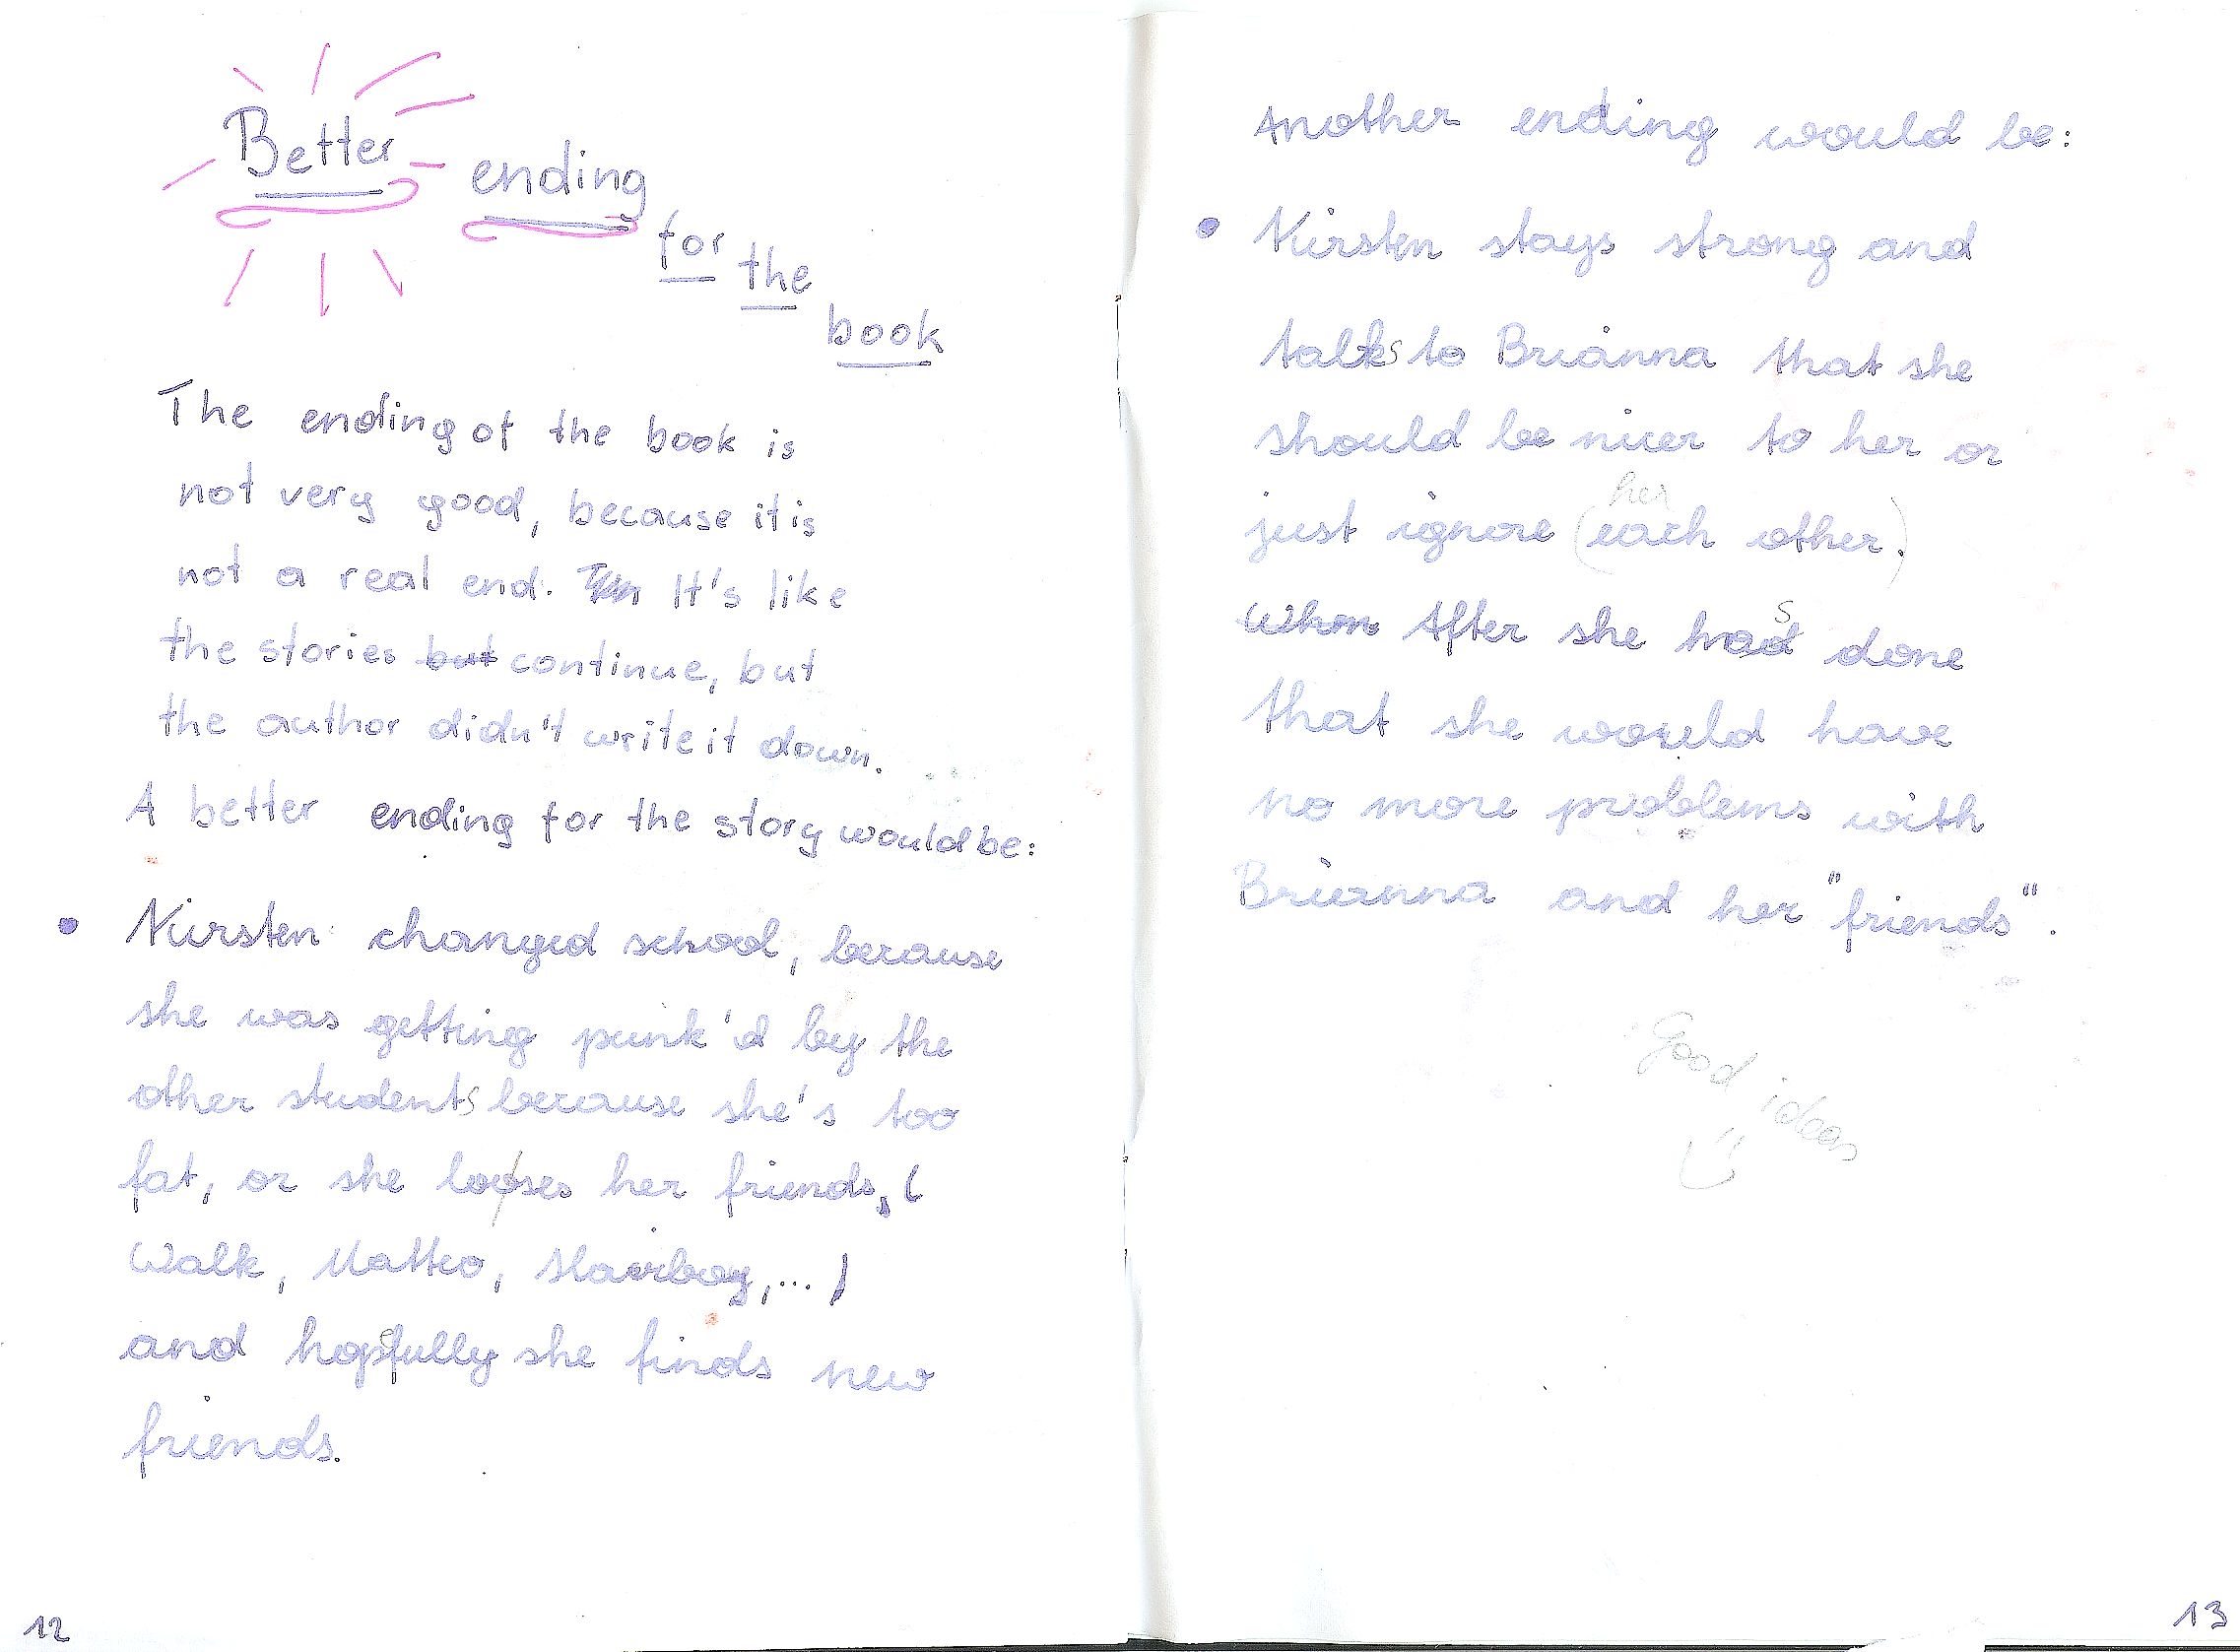 Better ending for the book
The ending of the book is
not very good, because it is
not a real end. It's like
the stories but continue, but
the author didn't write it down.
A better ending for the story would be:
• Kirsten changed school, because
she was getting punk'd by the
other students because she's too
fat, or she looses her friends, (
Walk, Matteo, Hairboy, ... )
and hopefully she finds new
friends.
12
Another ending would be:
• Kirsten stays strong and
talks to Brianna that she
should be nicer to her or
her
just ignore (each other.)
s
When After she had done
that she would have
no more problems with
Brianna and her "friends".
Good ideas
13